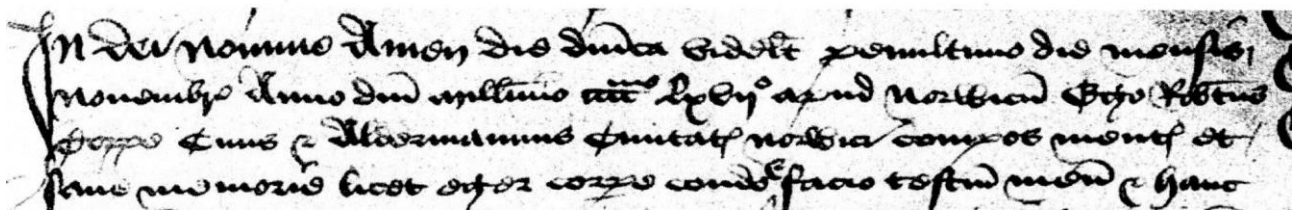 In dei nomine Amen die dn̄ica videlt̄ penultimo die mensis
Novembr̄ Anno dn̄i millīmo cccc̄ᵐᵒ lxvijº apud Norwicū Ego Rob̄tus
Toppe Civis & Aldermannus Civitat̄ Norwici compos ment̄ et
sane memorie licet eger corpe condo & facio testm̄ meū & hanc